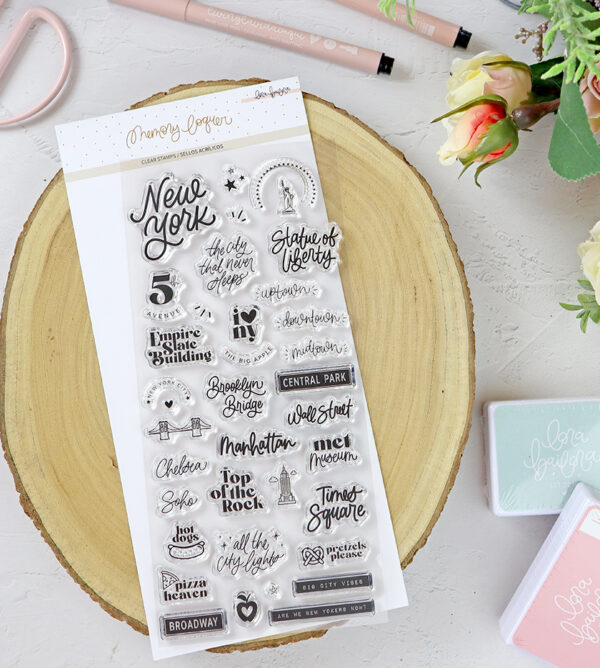 Lora Bailora
Memory loquer
CLEAR STAMPS / SELLOS ACRÍLICOS
NEW YORK
the city that never sleeps
Statue of Liberty
5th
AVENUE
uptown
i ny
downtown
Empire State Building
THE BIG APPLE
midtown
NEW YORK CITY
Brooklyn Bridge
CENTRAL PARK
Wall Street
Manhattan
met Museum
Chelsea
Soho
Top of the Rock
Times Square
hot dogs
all the City lights
pretzels please
pizza heaven
BIG CITY VIBES
BROADWAY
ARE WE NEW YOKERS NOW?
lora bailora
lora bailora